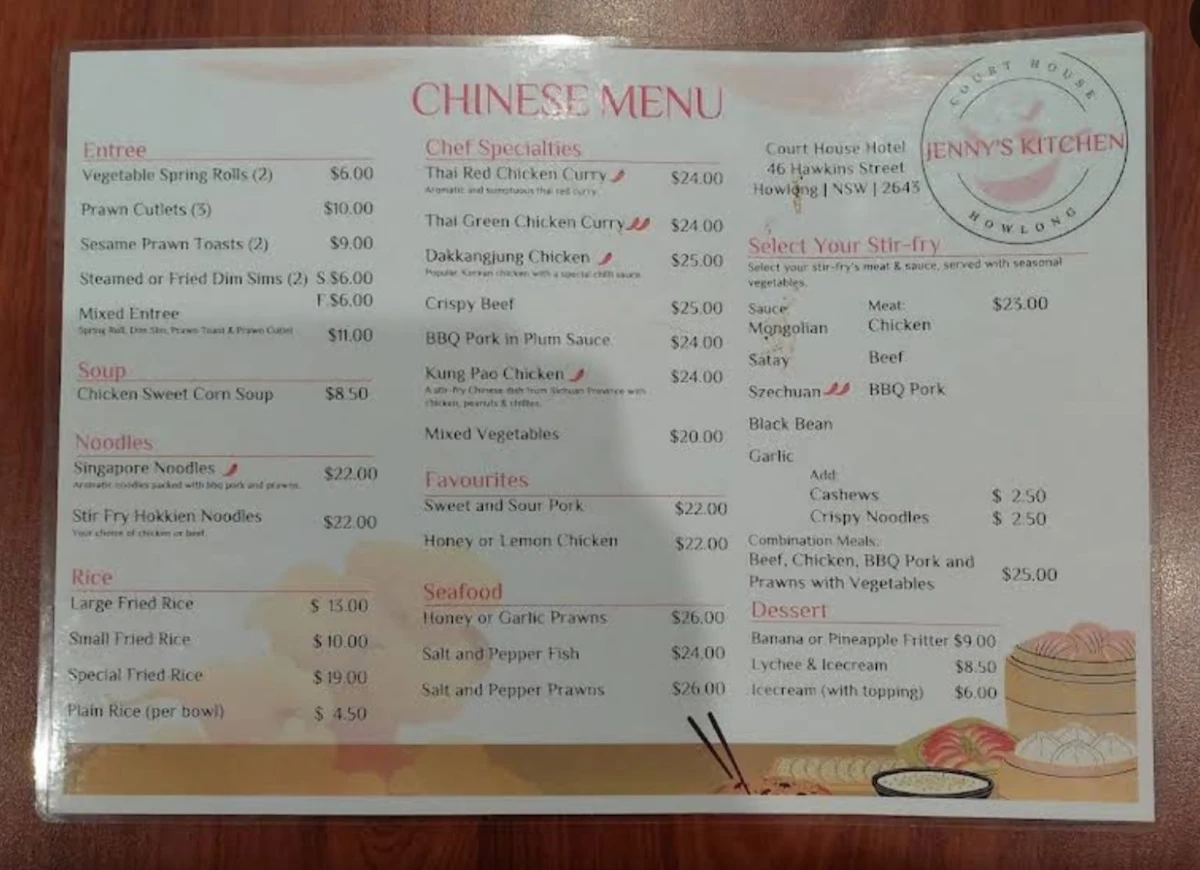 CHINESE MENU
Entree
Vegetable Spring Rolls (2) $6.00
Prawn Cutlets (3) $10.00
Sesame Prawn Toasts (2) $9.00
Steamed or Fried Dim Sims (2) S $6.00
F $6.00
Mixed Entree
Spring Roll, Dim Sim, Prawn Toast & Prawn Cutlet $11.00
Soup
Chicken Sweet Corn Soup $8.50
Noodles
Singapore Noodles $22.00
Aromatic noodles packed with bbq pork and prawns.
Stir Fry Hokkien Noodles $22.00
Your choice of chicken or beef.
Rice
Large Fried Rice $ 13.00
Small Fried Rice $ 10.00
Special Fried Rice $ 19.00
Plain Rice (per bowl) $ 4.50
Chef Specialties
Thai Red Chicken Curry $24.00
Aromatic and sumptuous thai red curry.
Thai Green Chicken Curry $24.00
Dakkangjung Chicken $25.00
Popular Korean chicken with a special chilli sauce.
Crispy Beef $25.00
BBQ Pork in Plum Sauce $24.00
Kung Pao Chicken $24.00
A stir-fry Chinese dish from Sichuan Province with
chicken, peanuts & chillies.
Mixed Vegetables $20.00
Favourites
Sweet and Sour Pork $22.00
Honey or Lemon Chicken $22.00
Seafood
Honey or Garlic Prawns $26.00
Salt and Pepper Fish $24.00
Salt and Pepper Prawns $26.00
Court House Hotel
46 Hawkins Street
Howlong | NSW | 2643
COURT HOUSE
JENNY'S KITCHEN
HOWLONG
Select Your Stir-fry
Select your stir-fry's meat & sauce, served with seasonal
vegetables.
Sauce Meat: $23.00
Mongolian Chicken
Satay Beef
Szechuan BBQ Pork
Black Bean
Garlic
Add:
Cashews $ 2.50
Crispy Noodles $ 2.50
Combination Meals:
Beef, Chicken, BBQ Pork and
Prawns with Vegetables $25.00
Dessert
Banana or Pineapple Fritter $9.00
Lychee & Icecream $8.50
Icecream (with topping) $6.00